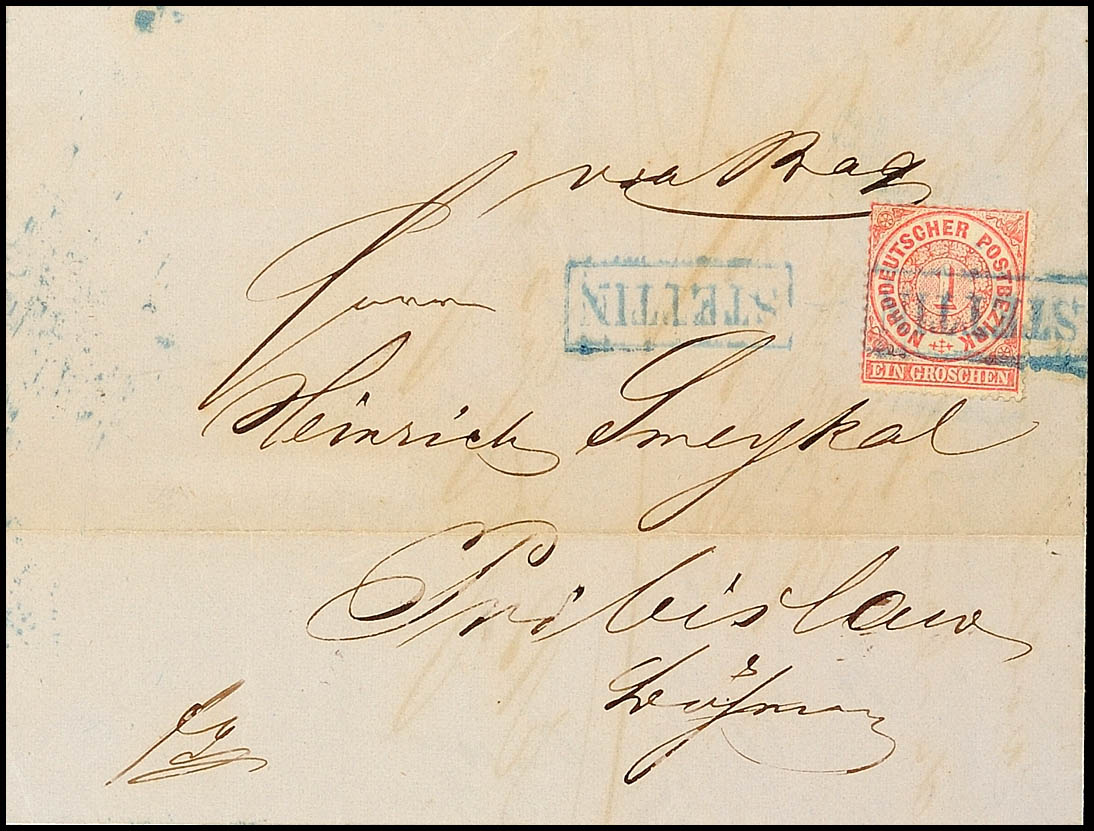 via Prag
NORDDEUTSCHER POSTBEZIRK
1
EIN GROSCHEN
STETTIN
STETTIN
Herrn
Heinrich Smeykal
Pribislaw
Böhmen